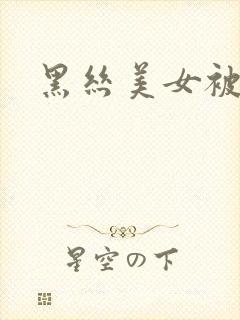 黑丝美女被
星空の下